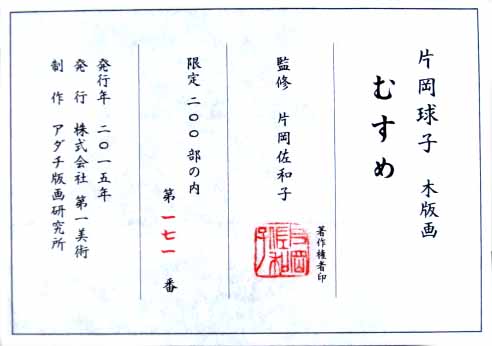 片岡球子 木版画
むすめ
監修 片岡佐和子
著作権者印
片岡佐和子
限定 二〇〇 部の内
第 一七一 番
発行年 二〇一五年
発行 株式会社 第一美術
制作 アダチ版画研究所